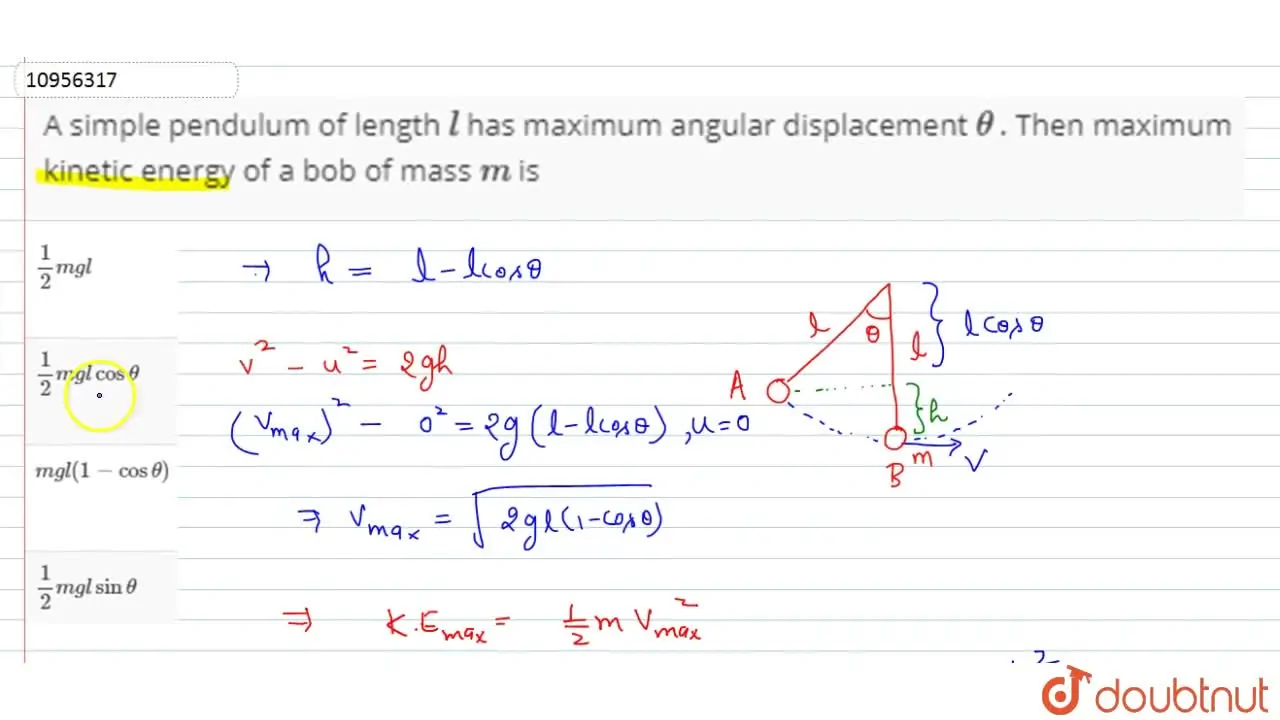 10956317
A simple pendulum of length l has maximum angular displacement θ. Then maximum
kinetic energy of a bob of mass m is
1/2 mgl
1/2 mgl cos θ
mgl(1 − cos θ)
1/2 mgl sin θ
→ h = l - l cos θ
v² - u² = 2gh
(Vmax)² - 0² = 2g (l - l cos θ), u = 0
⇒ Vmax = √2gl(1-cos θ)
⇒ K.Emax = 1/2 m Vmax²
l
θ
l
l cos θ
A
h
m
V
B
2
doubtnut